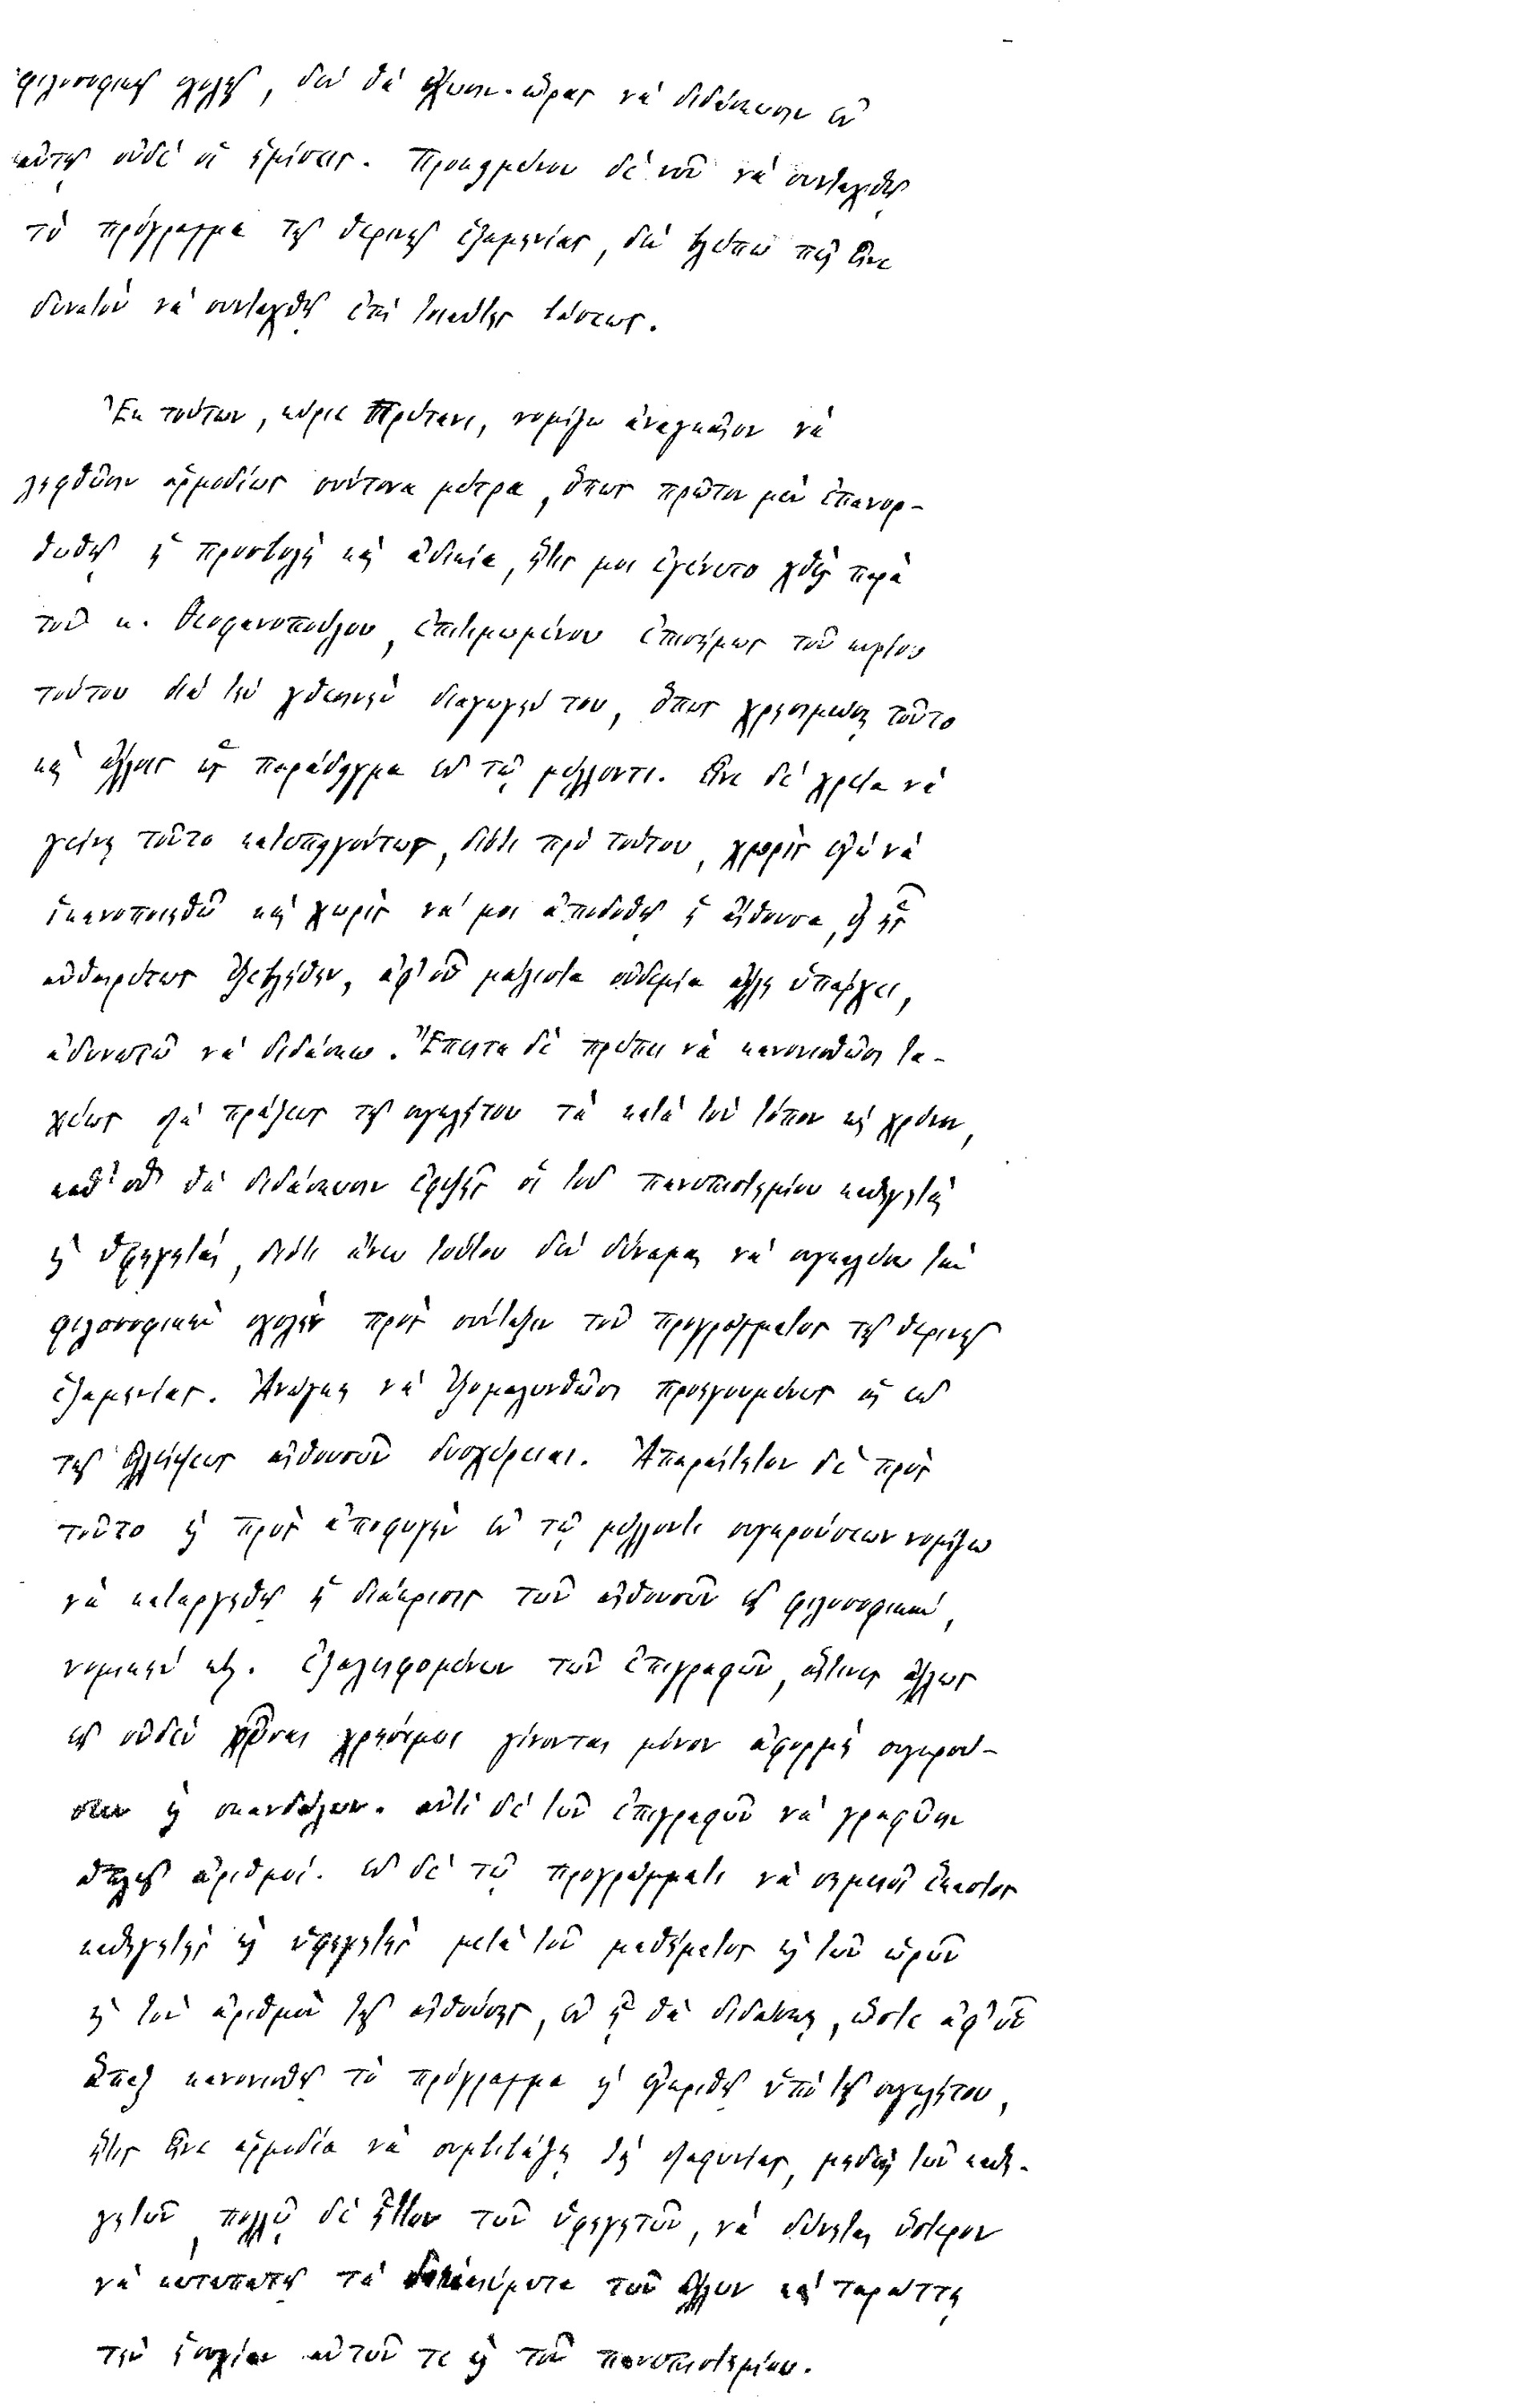 φιλοσοφικῆς σχολῆς, δὲν θὰ ἔχωσιν ὥρας νὰ διδάσκωσιν ἐν
αὐτῇ οὐδὲ οἱ ἡμίσεις. Προκειμένου δὲ νῦν νὰ συνταχθῇ
τὸ πρόγραμμα τῆς θερινῆς ἑξαμηνίας, δὲν βλέπω πῶς εἶνε
δυνατὸν νὰ συνταχθῇ ἐπὶ τοιαύτης βάσεως.
Ἐκ τούτων, κύριε Πρύτανι, νομίζω ἀναγκαῖον νὰ
ληφθῶσιν ἁρμοδίως σύντονα μέτρα, ὅπως πρῶτον μὲν ἐπανορ-
θωθῇ ἡ προσβολὴ καὶ ἀδικία, ἥτις μοι ἐγένετο χθὲς παρὰ
τοῦ κ. Θεοφανοπούλου, ἐπιτιμωμένου ἐπισήμως τοῦ κυρίου
τούτου διὰ τὴν χθεσινὴν διαγωγήν του, ὅπως χρησιμεύσῃ τοῦτο
καὶ ἄλλοις ὡς παράδειγμα ἐν τῷ μέλλοντι. Εἶνε δὲ χρεία νὰ
γείνῃ τοῦτο κατεπειγόντως, διότι πρὸ τούτου, χωρὶς ἐγὼ νὰ
ἱκανοποιηθῶ καὶ χωρὶς νά μοι ἀποδοθῇ ἡ αἴθουσα, ἐξ ἧς
αὐθαιρέτως ἐξεβλήθην, ἀφ' οὗ μάλιστα οὐδεμία ἄλλη ὑπάρχει,
ἀδυνατῶ νὰ διδάσκω. Ἔπειτα δὲ πρέπει νὰ κανονισθῶσι τα-
χέως διὰ πράξεως τῆς συγκλήτου τὰ κατὰ τὸν τόπον καὶ χρόνον,
καθ' ὃν θὰ διδάσκωσιν ἐφεξῆς οἱ τοῦ πανεπιστημίου καθηγηταὶ
καὶ ὑφηγηταί, διότι ἄνευ τούτου δὲν δύναμαι νὰ συγκαλέσω τὴν
φιλοσοφικὴν σχολὴν πρὸς σύνταξιν τοῦ προγράμματος τῆς θερινῆς
ἑξαμηνίας. Ἀνάγκη νὰ ἐξομαλυνθῶσι προηγουμένως αἱ ἐκ
τῆς ἐλλείψεως αἰθουσῶν δυσχέρειαι. Ἀπαραίτητον δὲ πρὸς
τοῦτο καὶ πρὸς ἀποφυγὴν ἐν τῷ μέλλοντι συγκρούσεων νομίζω
νὰ καταργηθῇ ἡ διάκρισις τῶν αἰθουσῶν εἰς φιλοσοφικήν,
νομικὴν κτλ. ἐξαλειφομένων τῶν ἐπιγραφῶν, αἵτινες ἄλλως
εἰς οὐδὲν οὖσαι χρήσιμοι γίνονται μόνον ἀφορμὴ συγκρού-
σεων καὶ σκανδάλων. ἀντὶ δὲ τῶν ἐπιγραφῶν νὰ γραφῶσιν
ἁπλῶς ἀριθμοί. ἐν δὲ τῷ προγράμματι νὰ σημειοῖ ἕκαστος
καθηγητὴς καὶ ὑφηγητὴς μετὰ τοῦ μαθήματος καὶ τῶν ὡρῶν
καὶ τὸν ἀριθμὸν τῆς αἰθούσης, ἐν ᾗ θὰ διδάσκῃ, ὥστε ἀφ' οὗ
ἅπαξ κανονισθῇ τὸ πρόγραμμα καὶ ἐγκριθῇ ὑπὸ τῆς συγκλήτου,
ἥτις εἶνε ἁρμοδία νὰ συμβιβάζῃ τὰς διαφωνίας, μηδεὶς τῶν καθη-
γητῶν, πολλῷ δὲ ἧττον τῶν ὑφηγητῶν, νὰ δύνηται ὕστερον
νὰ καταπατῇ τὰ δικαιώματα τῶν ἄλλων καὶ ταράττῃ
τὴν ἡσυχίαν αὐτῶν τε καὶ τοῦ πανεπιστημίου.